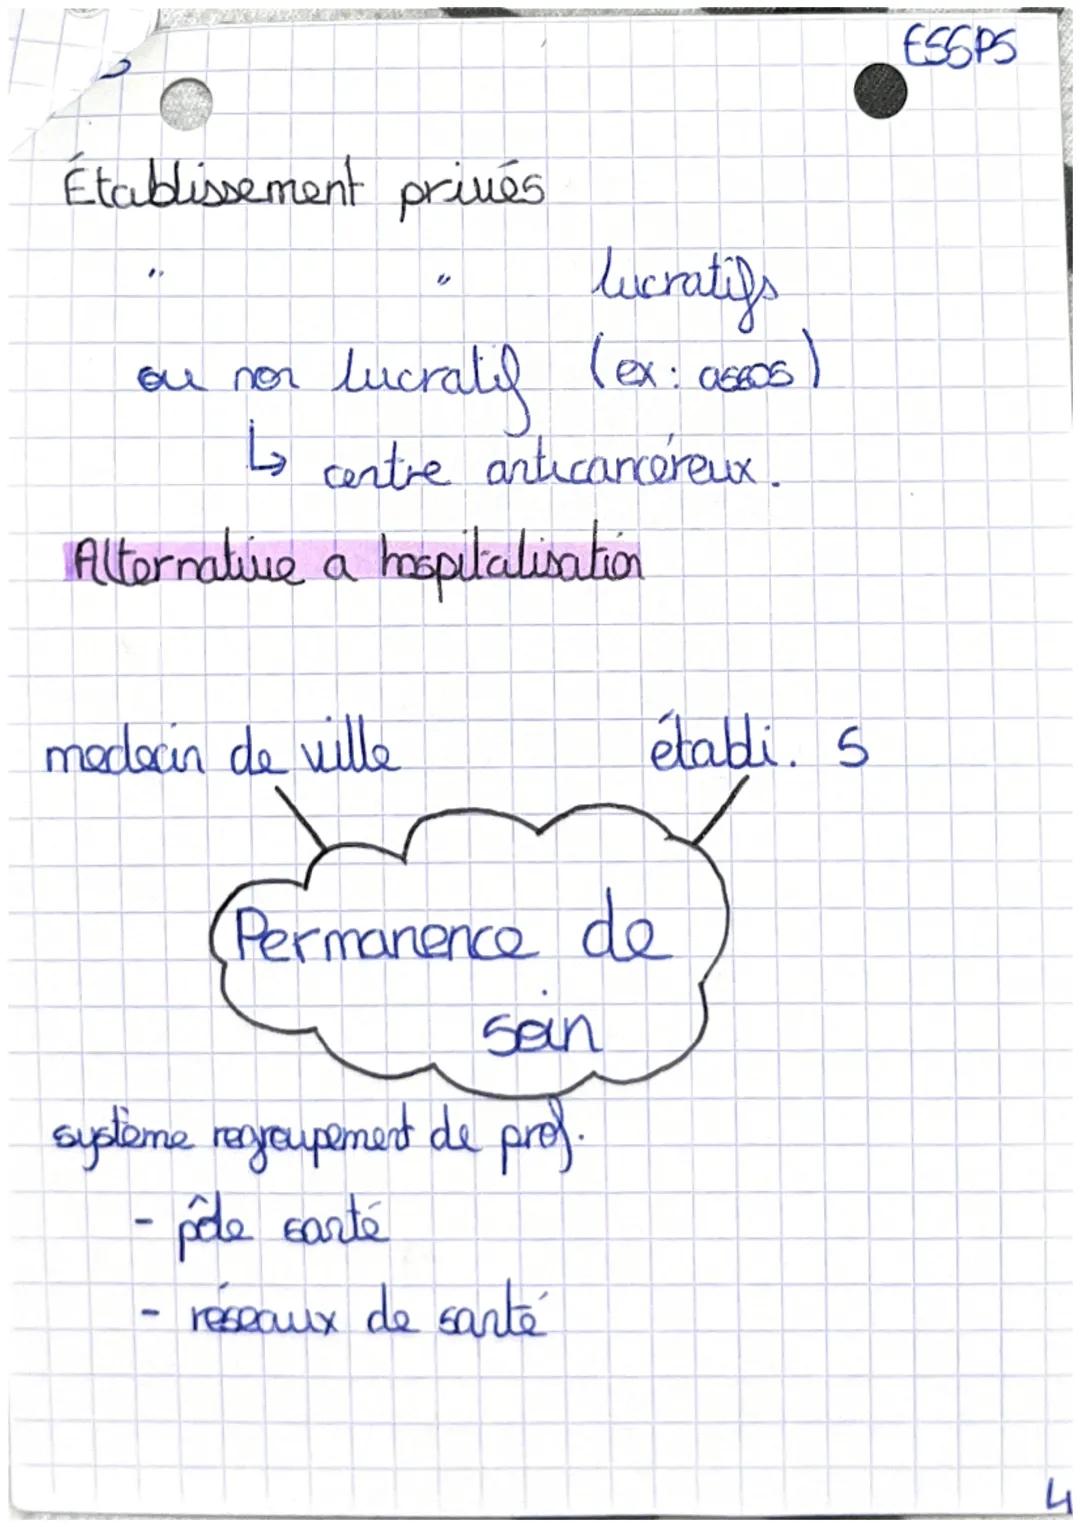 ESSPS
Établissement privés
" " lucratifs
ou non lucratif (ex: assos)
↳ centre anticancéreux.
Alternative a hospitalisation
medecin de ville établi. S
Permanence de
soin
système regroupement de prof.
- pôle santé
- réseaux de santé
4